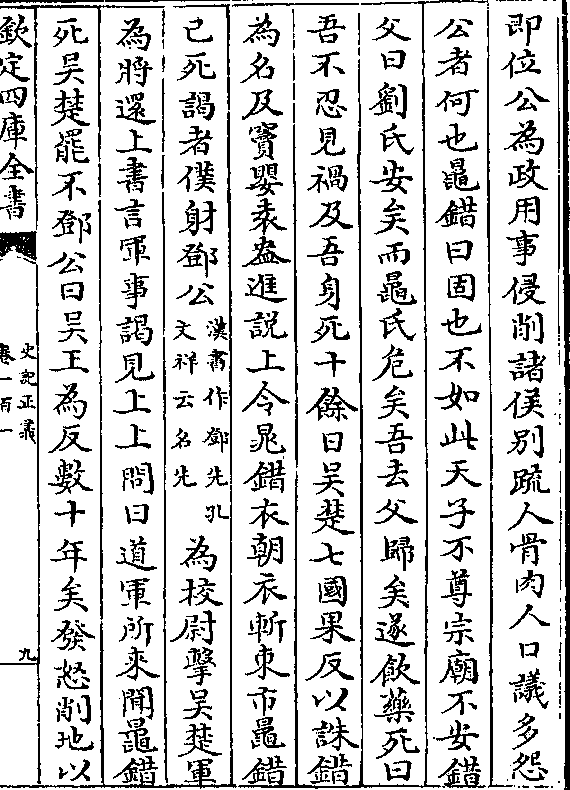 即位公為政用事侵削諸侯别疏人骨肉人口議多怨
公者何也鼂錯曰固也不如此天子不尊宗廟不安錯
父曰劉氏安矣而鼂氏危矣吾去父歸矣遂飲藥死曰
吾不忍見禍及吾身死十餘日吳楚七國果反以誅錯
為名及竇嬰袁盎進説上令鼂錯衣朝衣斬東市鼂錯
已死謁者僕射鄧公漢書作鄧先孔文祥云名先為校尉擊吳楚軍
為將還上書言軍事謁見上上問曰道軍所來聞鼂錯
死吳楚罷不鄧公曰吳王為反數十年矣發怒削地以
欽定四庫全書
史記正義
卷一百一
九